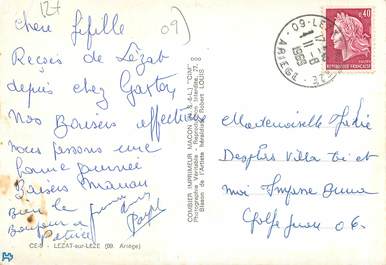 127
09)
Chère fifille
Reçois de Lézat
depuis chez Gaston
Nos Baisers affectueux
nous passons une
bonne journée
Baisers Maman
Bien le
Bonjour à
CE-8 - LEZAT-sur-LEZE (09. Ariège)
COMBIER IMPRIMEUR MACON (S.-&-L.) "CIM"
Photographie Véritable - Reproduction Interdite
Blason de l'Artiste héraldiste Robert LOUIS
09 - LEZAT
ARIEGE
17 H
11 - 8
1969
0,40
REPUBLIQUE FRANÇAISE
POSTES
Mademoiselle
Villa et
moi
Golfe Juan 06.